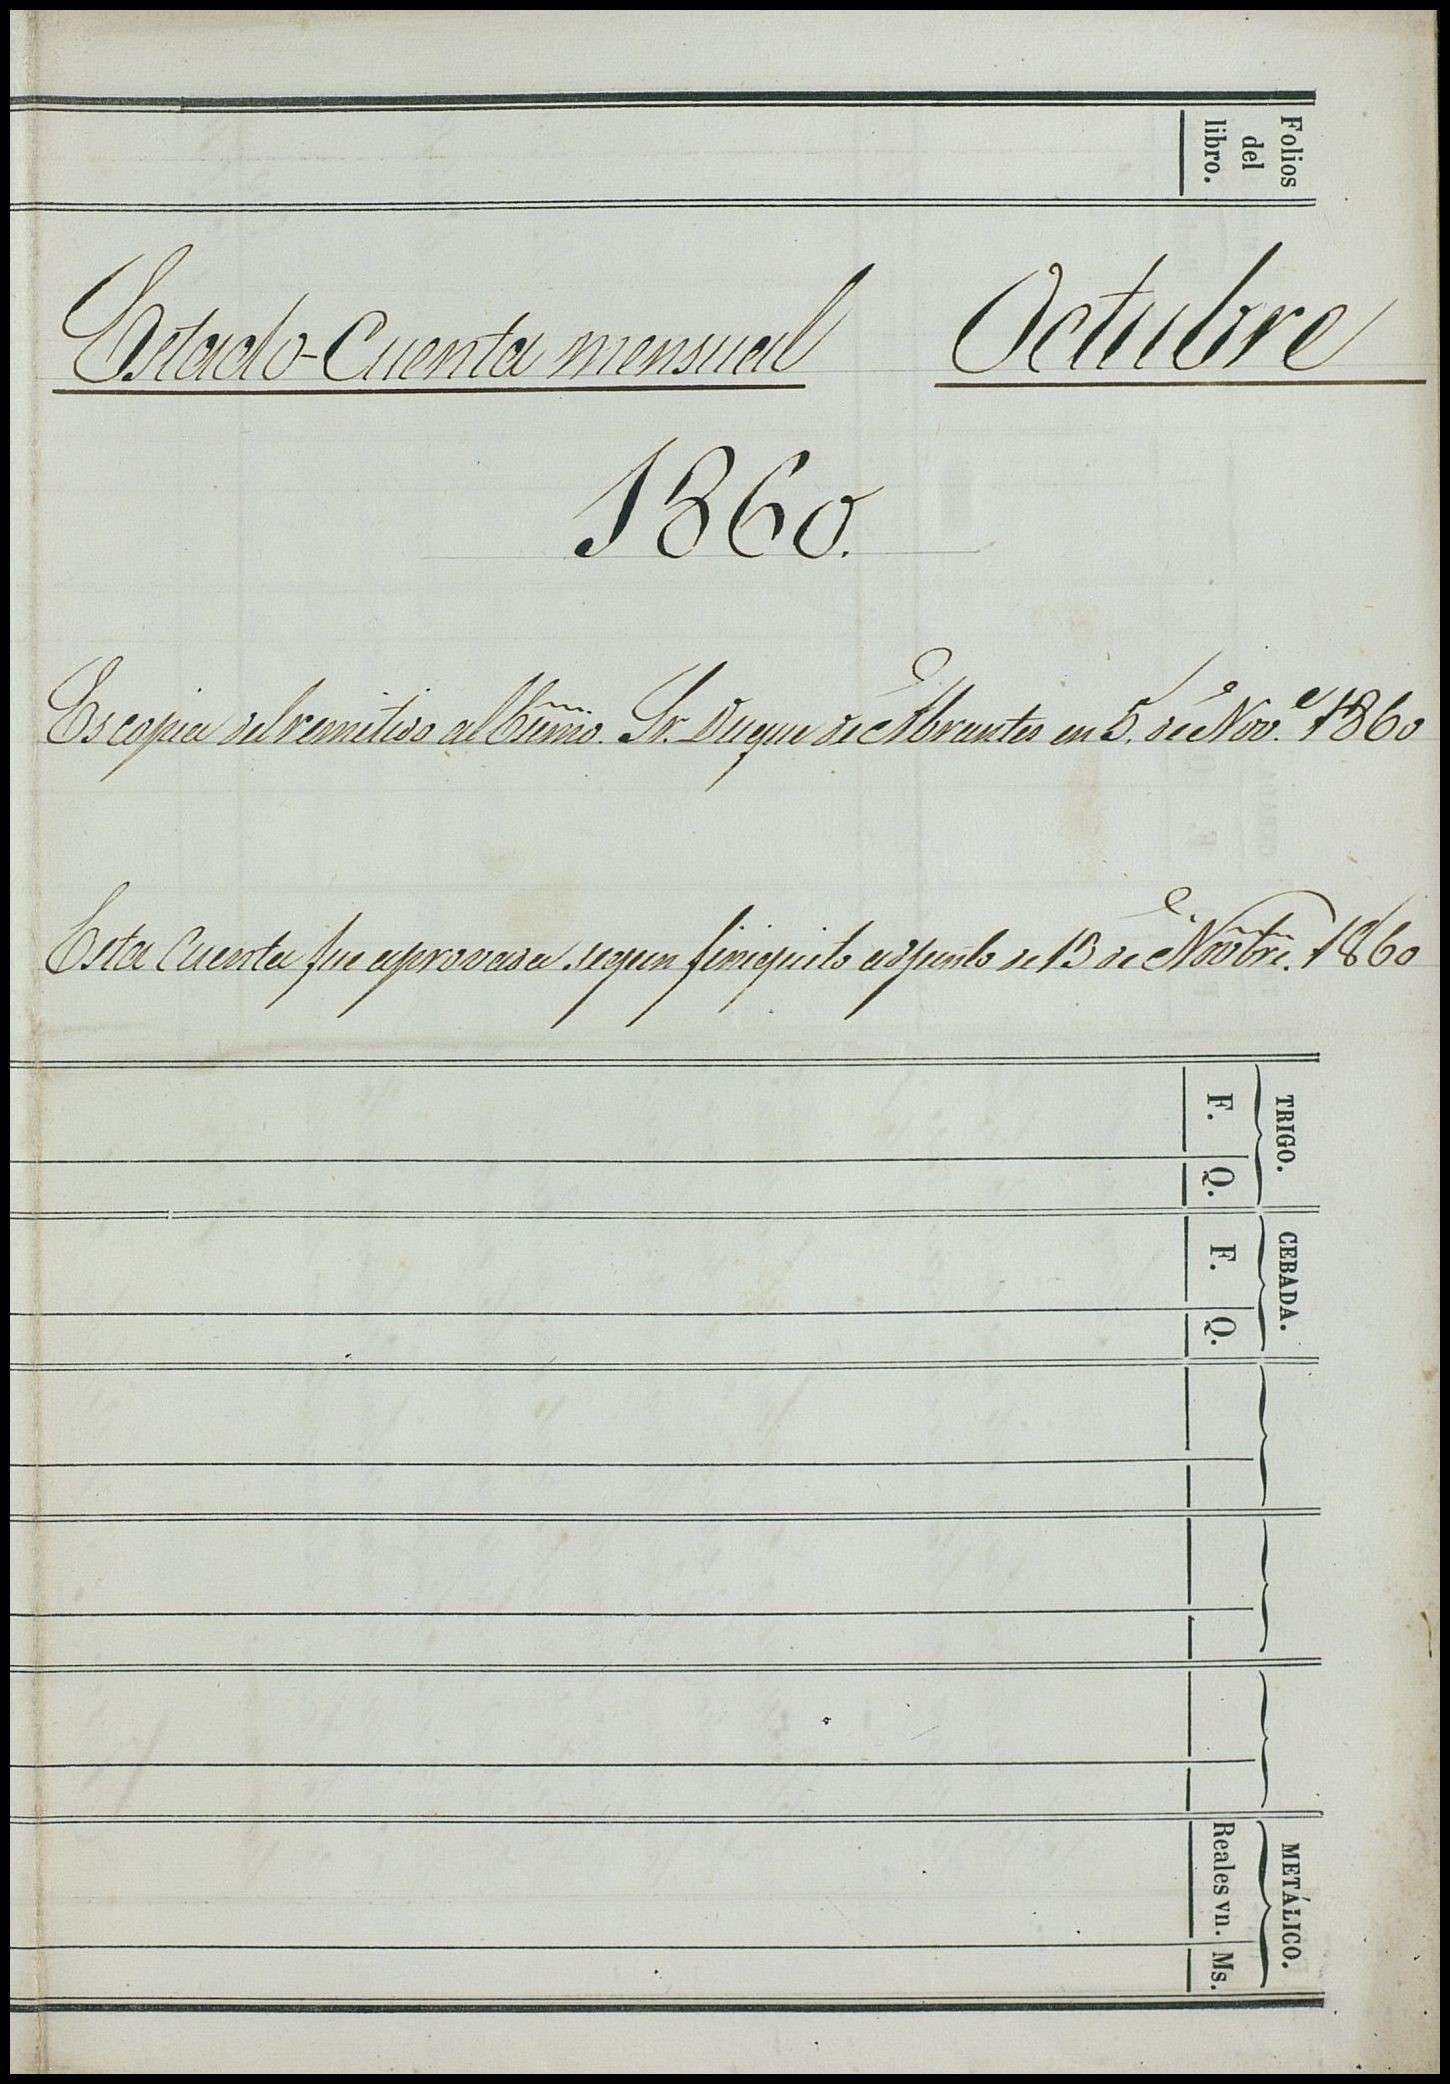 Folios
del
libro.
Estado-Cuenta mensual Octubre
1860.
Es copia del remitido al Exmo. Sr. Duque de Abrantes en 5. de Nov.e 1860
Esta Cuenta fue aprovada segun finiquito adjunto de 13 de Novbre. 1860
TRIGO.
F. Q.
CEBADA.
F. Q.
METÁLICO.
Reales vn. Ms.